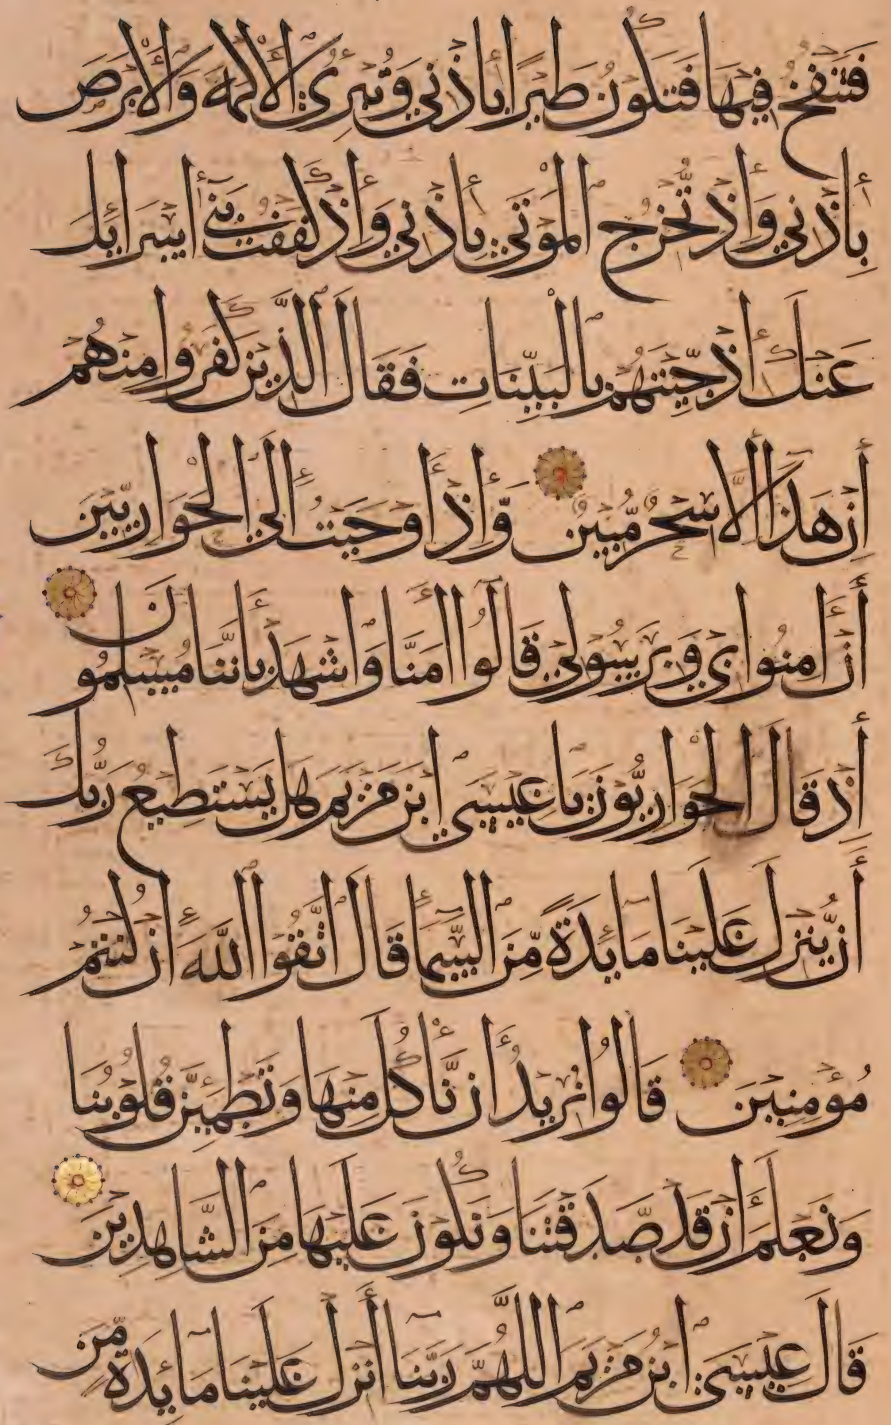 فَتَنْفُخُ فِيهَا فَتَكُونُ طَيْرًا بِإِذْنِي وَتُبْرِئُ الْأَكْمَهَ وَالْأَبْرَصَ
بِإِذْنِي وَإِذْ تُخْرِجُ الْمَوْتَى بِإِذْنِي وَإِذْ كَفَفْتُ بَنِي إِسْرَائِيلَ
عَنْكَ إِذْ جِئْتَهُمْ بِالْبَيِّنَاتِ فَقَالَ الَّذِينَ كَفَرُوا مِنْهُمْ
إِنْ هَذَا إِلَّا سِحْرٌ مُّبِينٌ وَّإِذْ أَوْحَيْتُ إِلَى الْحَوَارِيِّينَ
أَنْ آمِنُوا بِي وَبِرَسُولِي قَالُوا آمَنَّا وَاشْهَدْ بِأَنَّنَا مُسْلِمُونَ
إِذْ قَالَ الْحَوَارِيُّونَ يَا عِيسَى ابْنَ مَرْيَمَ هَلْ يَسْتَطِيعُ رَبُّكَ
أَنْ يُّنَزِّلَ عَلَيْنَا مَائِدَةً مِّنَ السَّمَا قَالَ اتَّقُوا اللَّهَ إِنْ كُنْتُمْ
مُؤْمِنِينَ قَالُوا نُرِيدُ أَنْ نَّأْكُلَ مِنْهَا وَتَطْمَئِنَّ قُلُوبُنَا
وَنَعْلَمَ أَنْ قَدْ صَدَقْتَنَا وَنَكُونَ عَلَيْهَا مِنَ الشَّاهِدِينَ
قَالَ عِيسَى ابْنُ مَرْيَمَ اللَّهُمَّ رَبَّنَا أَنْزِلْ عَلَيْنَا مَائِدَةً مِّنَ